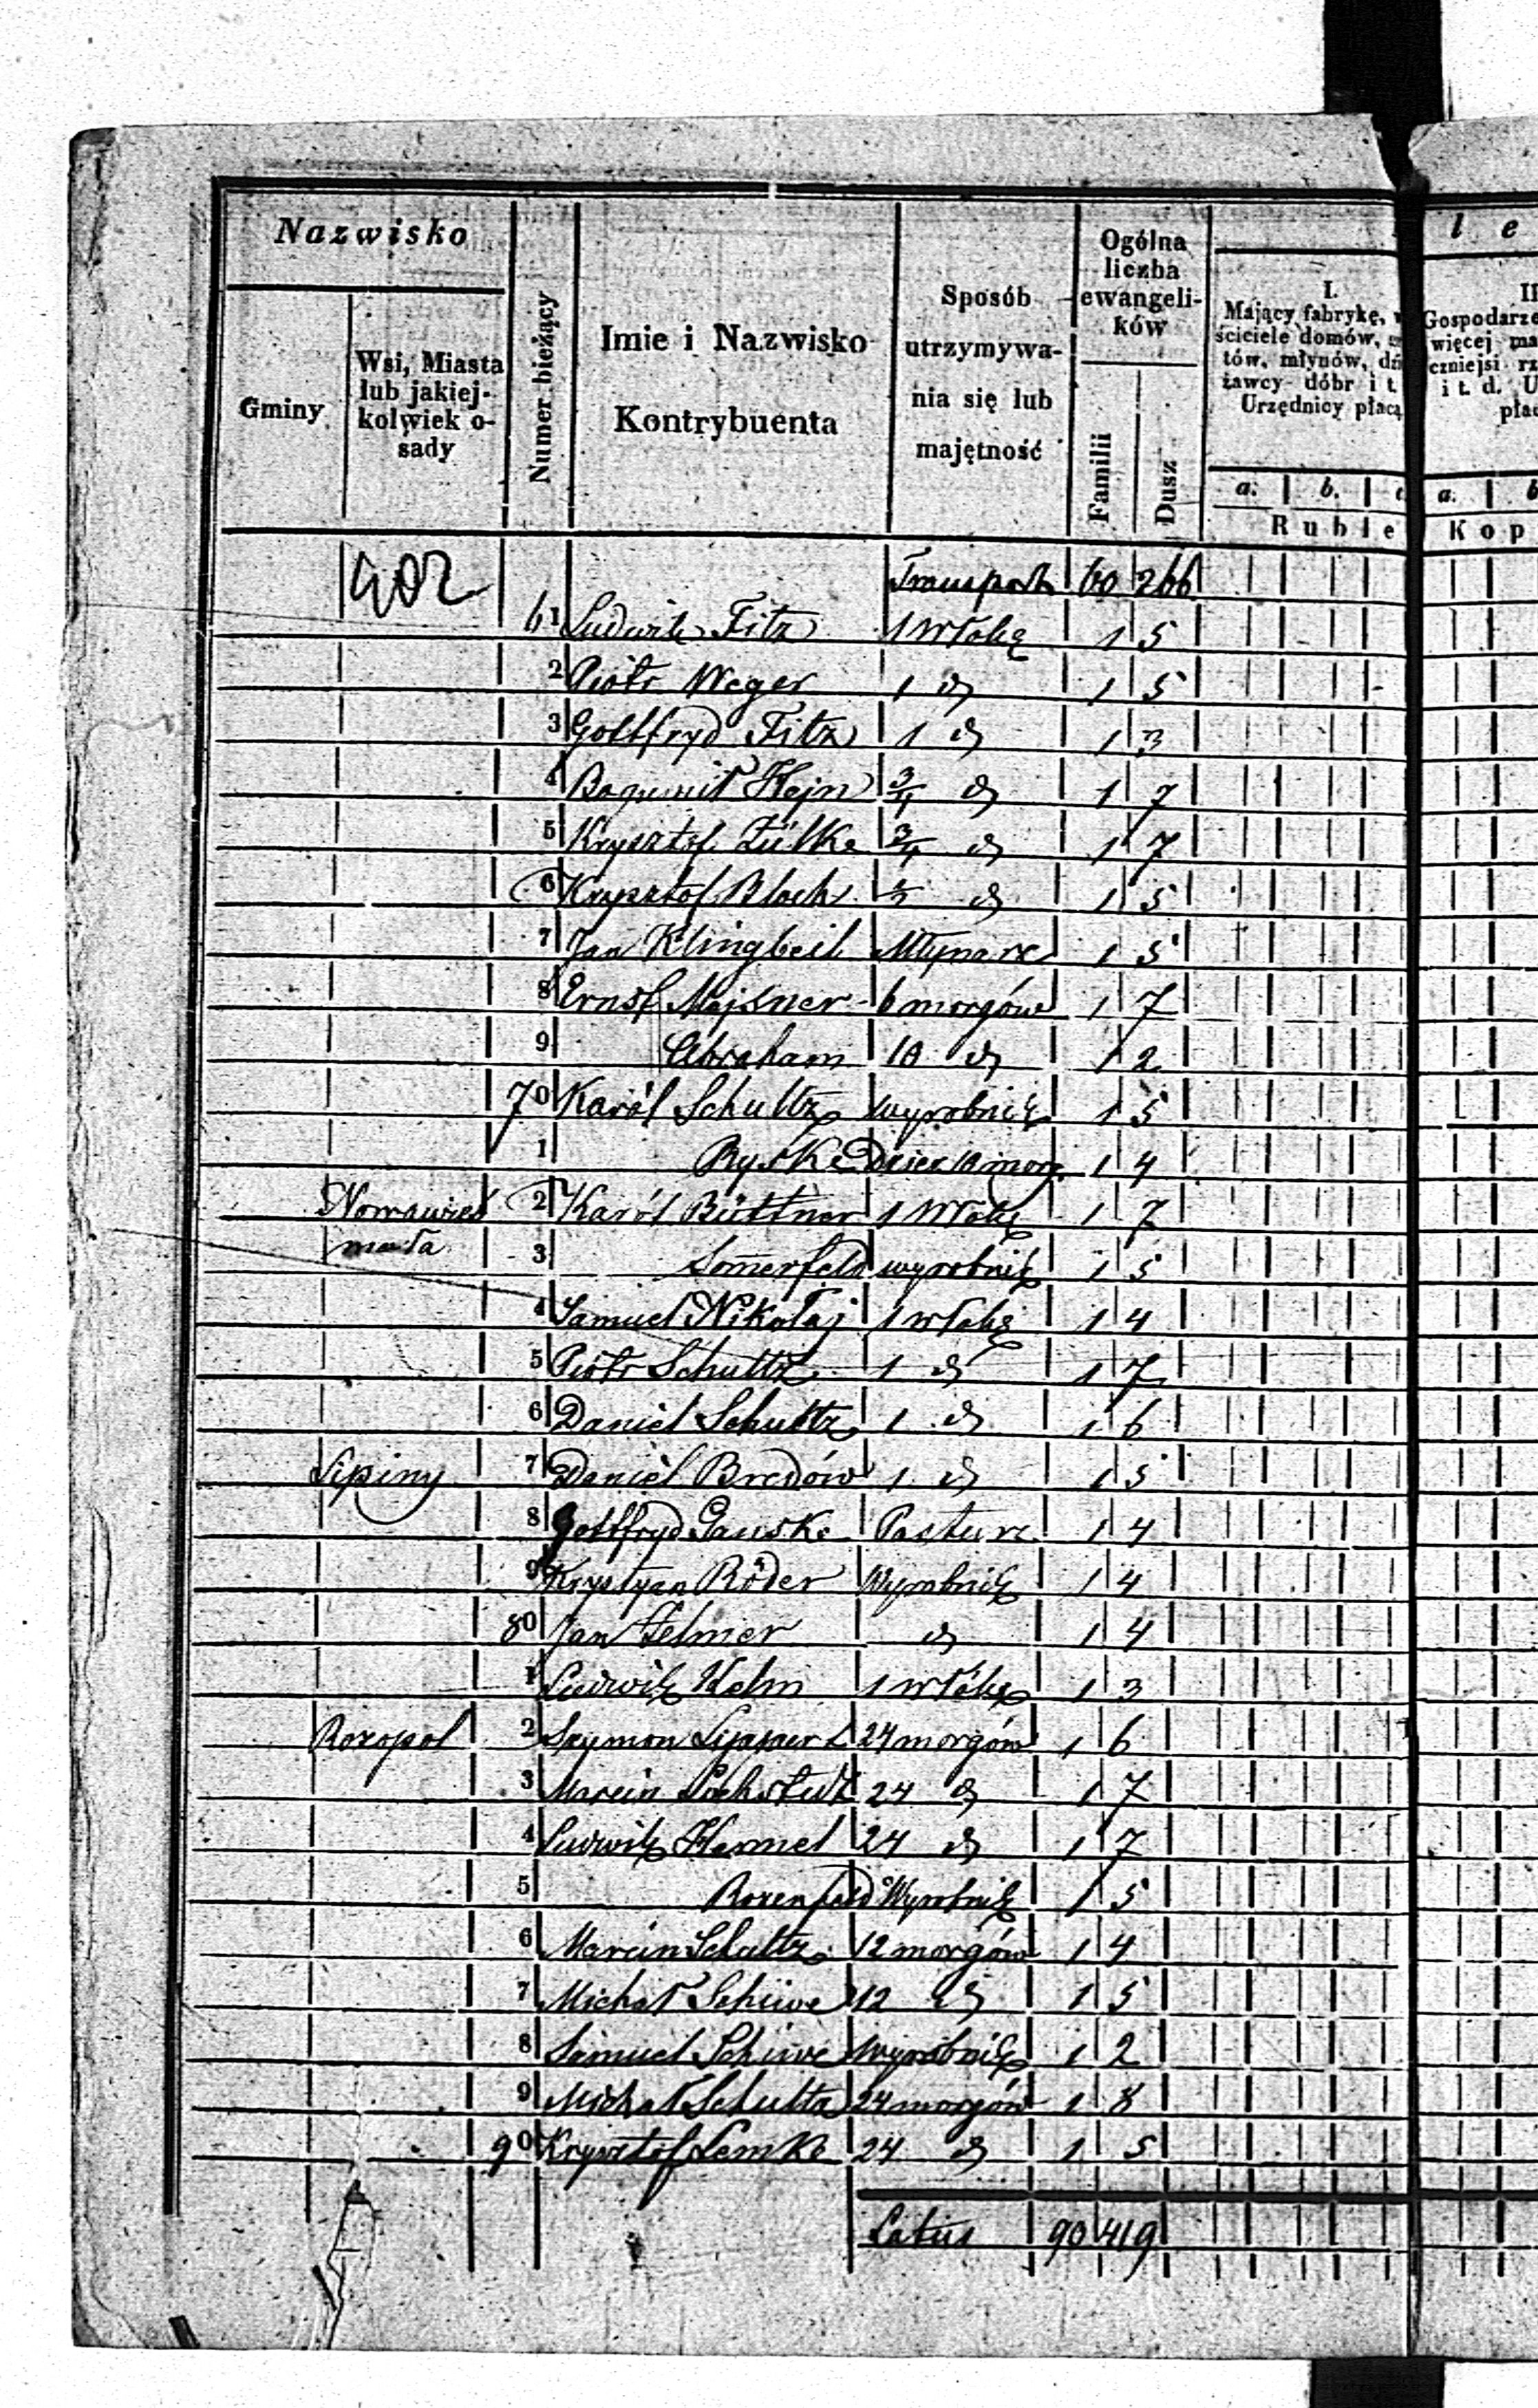 Nazwisko
Gminy
Wsi, Miasta
lub jakiej-
kolwiek o-
sady
Numer bieżący
Imie i Nazwisko
Kontrybuenta
Sposób
utrzymywa-
nia się lub
majętność
Ogólna
liczba
ewangeli-
ków
Familii
Dusz
I.
Mający fabrykę,
ściciele domów,
tów, młynów,
żawcy dóbr i t
Urzędnicy płacą
a. b. c
Ruble
l e
II
Gospodarze
więcej
czniejsi
i t. d. U
a. b
Kop
402 Transport 60 266
61 Ludwik Fitz 1 włokę 1 5
2 Piotr Weger 1 d 1 5
3 Gottfryd Fitz 1 d 1 3
4 Bogumił Hejn 3/4 d 1 7
5 Krysztof Zülke 3/4 d 1 7
6 Krysztof Bloch d 1 5
7 Jan Klingbeil Młynarz 1 5
8 Ernst Majsner 6 morgów 1 7
9 Abraham 10 d 1 2
70 Karól Schultz wyrobnik 1 5
1 Ryske 1 4
Nowawieś 2 Karól Büttner 1 włokę 1 7
mała 3 Somerfeld wyrobnik 1 5
4 Samuel Nikołaj 1 włokę 1 4
5 Piotr Schultz 1 d 1 7
6 Daniel Schultz 1 d 1 6
Lipiny 7 Daniel Bredów 1 d 1 5
8 Gottfryd Ganske Pasturz 1 4
9 Krystyan Röder Wyrobnik 1 4
80 Jan d 1 4
1 Ludwik Kelm 1 włókę 1 3
Rozopol 2 Szymon 24 morgów 1 6
3 Marcin 24 d 1 7
4 Ludwik Hemel 24 d 1 7
5 Rozenfeld Wyrobnik 1 5
6 Marcin Schultz 12 morgów 1 4
7 Michał Schiwe 12 d 1 5
8 Samuel Schiwe Wyrobnik 1 2
9 Michał Schultz 24 morgów 1 8
90 Krysztof Lemke 24 d 1 5
Latus 90 419